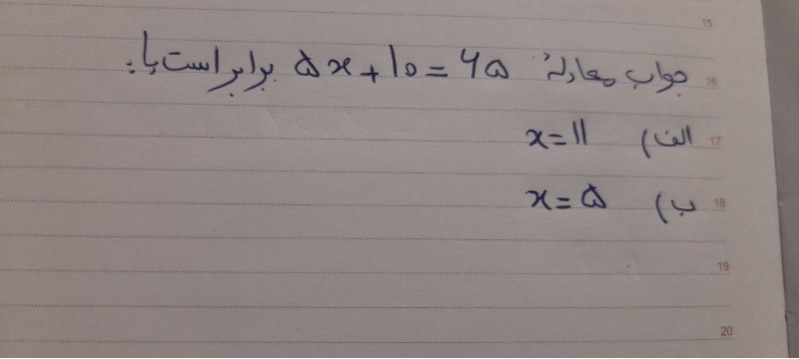 15
16 جواب معادلهٔ ۵x+۱۰=۶۵ برابر است با:
17 الف) x=۱۱
18 ب) x=۵
19
20